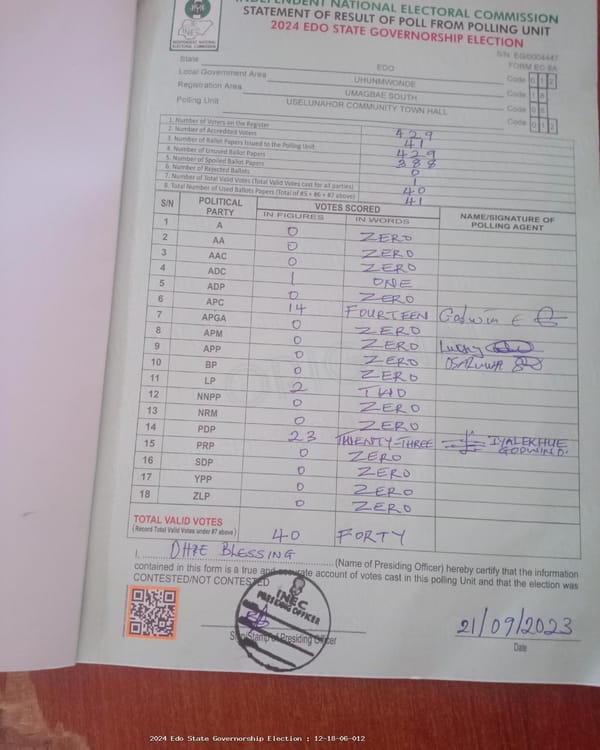 INDEPENDENT NATIONAL ELECTORAL COMMISSION
STATEMENT OF RESULT OF POLL FROM POLLING UNIT
2024 EDO STATE GOVERNORSHIP ELECTION
S/N: EG/0004447
FORM EC 8A
State EDO Code 0 1 2
Local Government Area UHUNMWONDE Code 1 8
Registration Area UMAGBAE SOUTH Code 0 6
Polling Unit USELUNAHOR COMMUNITY TOWN HALL Code 0 1 2
1. Number of Voters on the Register 429
2. Number of Accredited Voters 41
3. Number of Ballot Papers Issued to the Polling Unit 429
4. Number of Unused Ballot Papers 388
5. Number of Spoiled Ballot Papers 0
6. Number of Rejected Ballots 1
7. Number of Total Valid Votes (Total Valid Votes cast for all parties) 40
8. Total Number of Used Ballots Papers (Total of #5 + #6 + #7 above) 41
S/N POLITICAL PARTY VOTES SCORED NAME/SIGNATURE OF POLLING AGENT
IN FIGURES IN WORDS
1 A 0 ZERO
2 AA 0 ZERO
3 AAC 0 ZERO
4 ADC 1 ONE
5 ADP 0 ZERO
6 APC 14 FOURTEEN Godwin E
7 APGA 0 ZERO
8 APM 0 ZERO Lucky
9 APP 0 ZERO
10 BP 0 ZERO
11 LP 2 TWO
12 NNPP 0 ZERO
13 NRM 0 ZERO
14 PDP 23 TWENTY-THREE IYALEKHUE GODWIN O.
15 PRP 0 ZERO
16 SDP 0 ZERO
17 YPP 0 ZERO
18 ZLP 0 ZERO
TOTAL VALID VOTES 40 FORTY
(Record Total Valid Votes under #7 above)
I, OHZE BLESSING (Name of Presiding Officer) hereby certify that the information
contained in this form is a true and accurate account of votes cast in this polling Unit and that the election was
CONTESTED/NOT CONTESTED
INEC
PRESIDING OFFICER
Sign/Stamp of Presiding Officer
21/09/2023
Date
2024 Edo State Governorship Election : 12-18-06-012